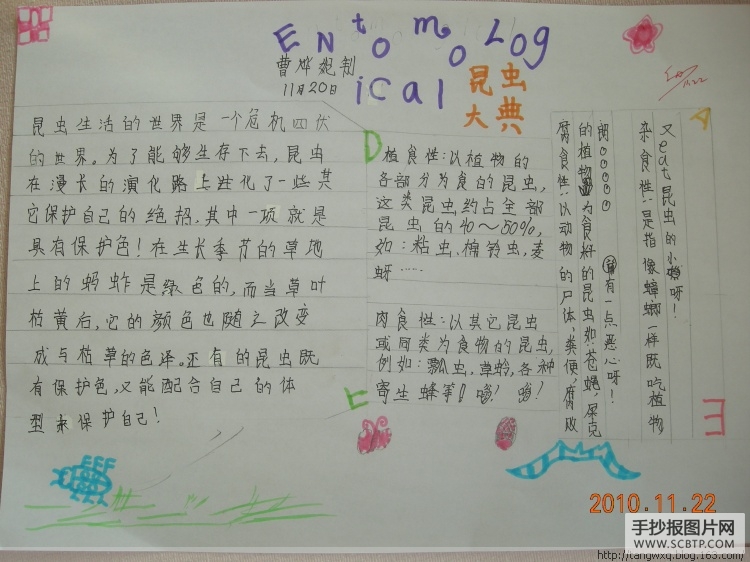 ENtomoLog
ical
昆虫
大典
曹烨妮制
11月20日
昆虫生活的世界是一个危机四伏
的世界。为了能够生存下去,昆虫
在漫长的演化路上进化了一些其
它保护自己的绝招,其中一项就是
具有保护色!在生长季节的草地
上的蚂蚱是绿色的,而当草叶
枯黄后,它的颜色也随之改变
成与枯草的色泽。还有的昆虫既
有保护色,又能配合自己的体
型来保护自己!
植食性:以植物的
各部分为食的昆虫,
这类昆虫约占全部
昆虫的40~50%,
如:粘虫、棉铃虫,麦
蚜……
肉食性:以其它昆虫
或同类为食物的昆虫,
例如:瓢虫,草蛉,各种
寄生蜂等!
杂食性:是指像蟑螂一样既吃植物
又eat昆虫的小 呀!
腐食性:以动物的尸体,粪便,腐败
的植物为食籽的昆虫如:苍蝇,屎克
郎。。。。。。有一点恶心呀!
11.22
2010.11.22
手抄报图片网
WWW.SCBTP.COM
http://tangwxq.blog.163.com/